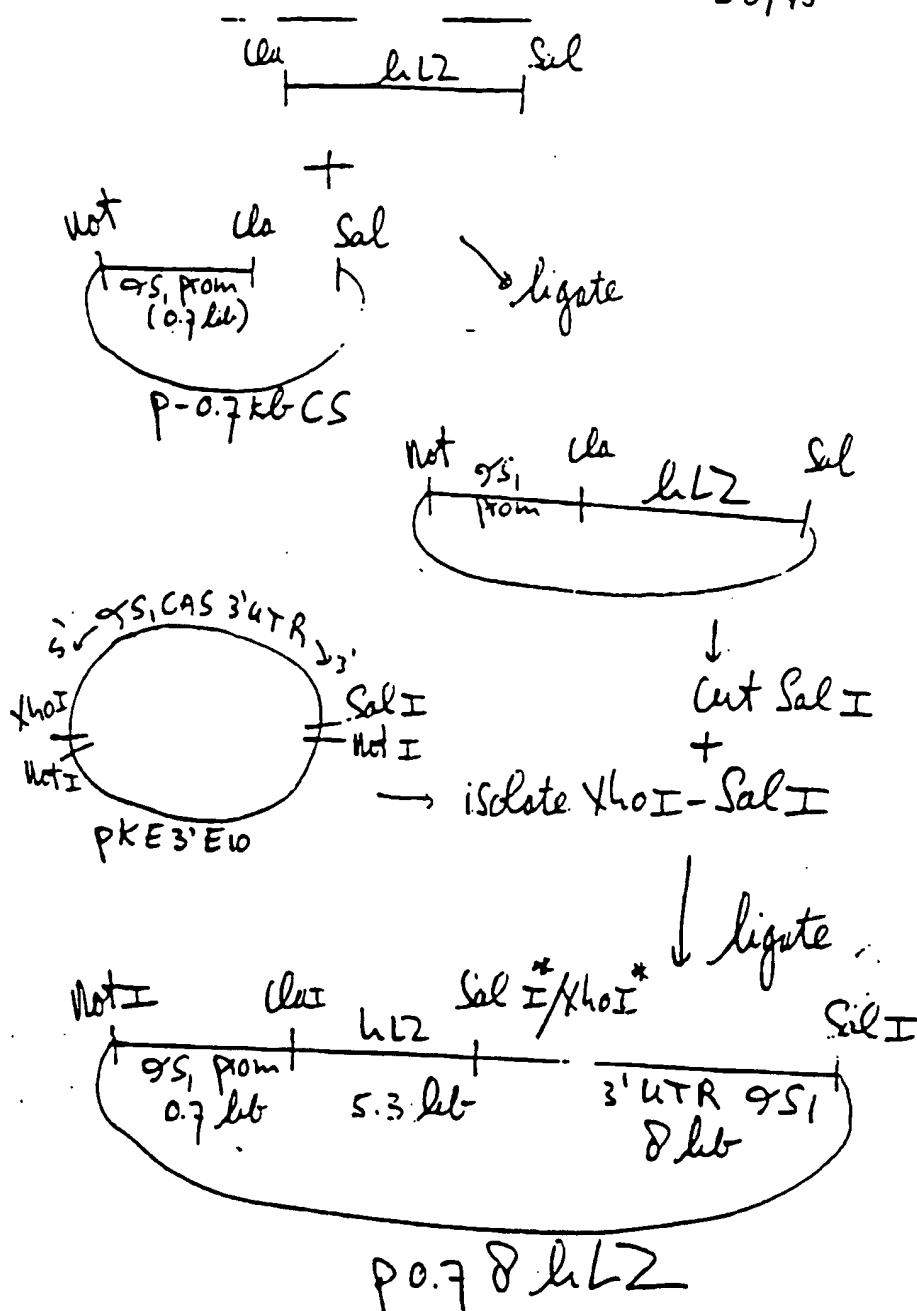 Cla hLZ Sal
+
Not Cla Sal
αS₁ prom
(0.7 kb)
ligate
p-0.7kb CS
Not αS₁ prom Cla hLZ Sal
5' αS₁ CAS 3'UTR 3'
XhoI
NotI
Sal I
Not I
pKE3'E10
Cut Sal I
+
isolate XhoI-Sal I
ligate
NotI ClaI Sal I*/XhoI* Sal I
αS₁ prom hLZ 3' UTR αS₁
0.7 kb 5.3 kb 8 kb
p0.7 8 hLZ